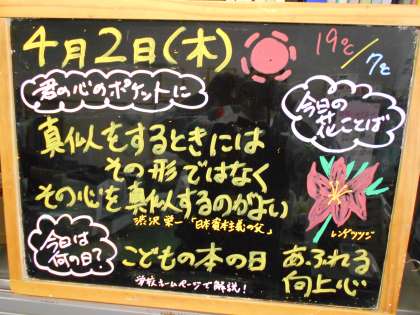 4月2日(木)
19℃/7℃
君の心のポケットに
今日の花ことば
真似をするときには
その形ではなく
その心を真似するのがよい
渋沢栄一「日本資本主義の父」
レンゲツツジ
今日は何の日?
こどもの本の日
あふれる
向上心
学校ホームページで解説!